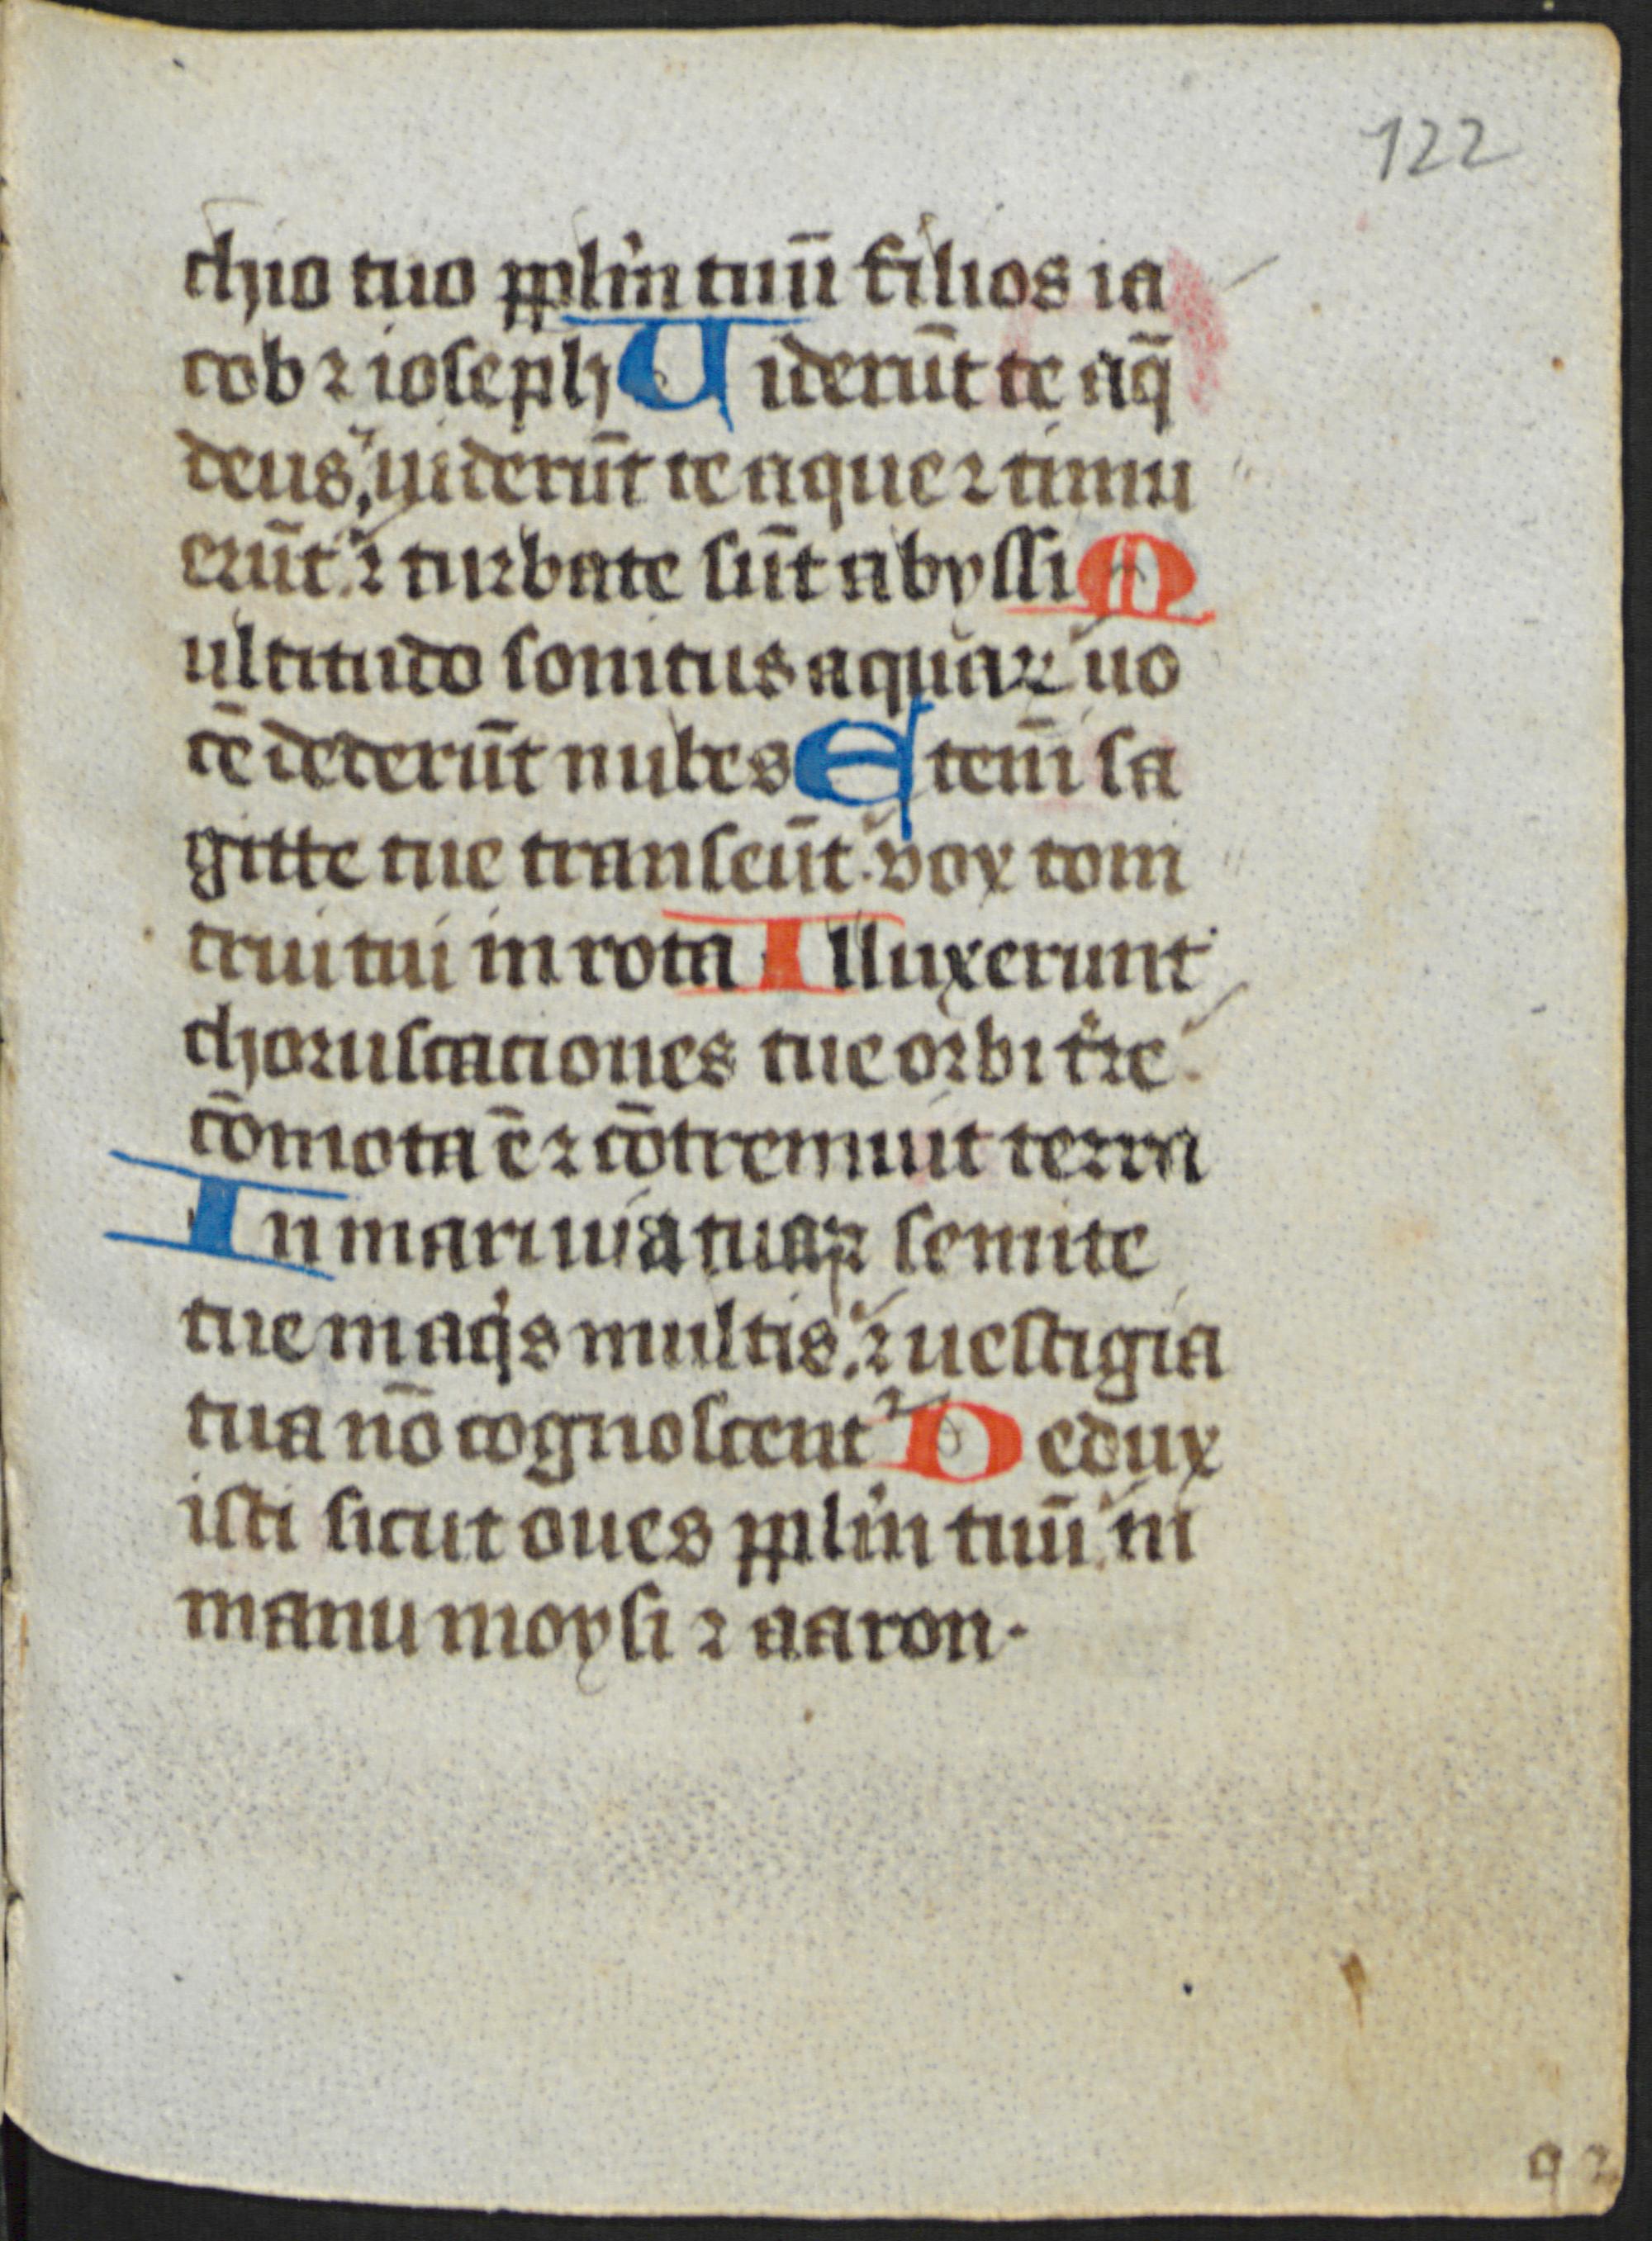 122
chio tuo pp̲lm̄ tuū filios ia
cob ⁊ ioseph Uiderūt te aq̄
deus, uiderūt te aque ⁊ timu
erūt ⁊ turbate sūt abyssi M
ultitudo sonitus aquaꝝ uo
cē dederūt nubes Eteni̅ sa
gitte tue transeūt. vox toni
trui tui in rota Illuxerunt
choruscaciones tue orbi tr̄e
cōmota ē ⁊ cōtremuit terra
In mari uia tua ⁊ semite
tue in aq's multis. ⁊ uestigia
tua nō cognoscent᷑ Dedux
isti sicut oues pplm̄ tuū in
manu moysi ⁊ aaron.